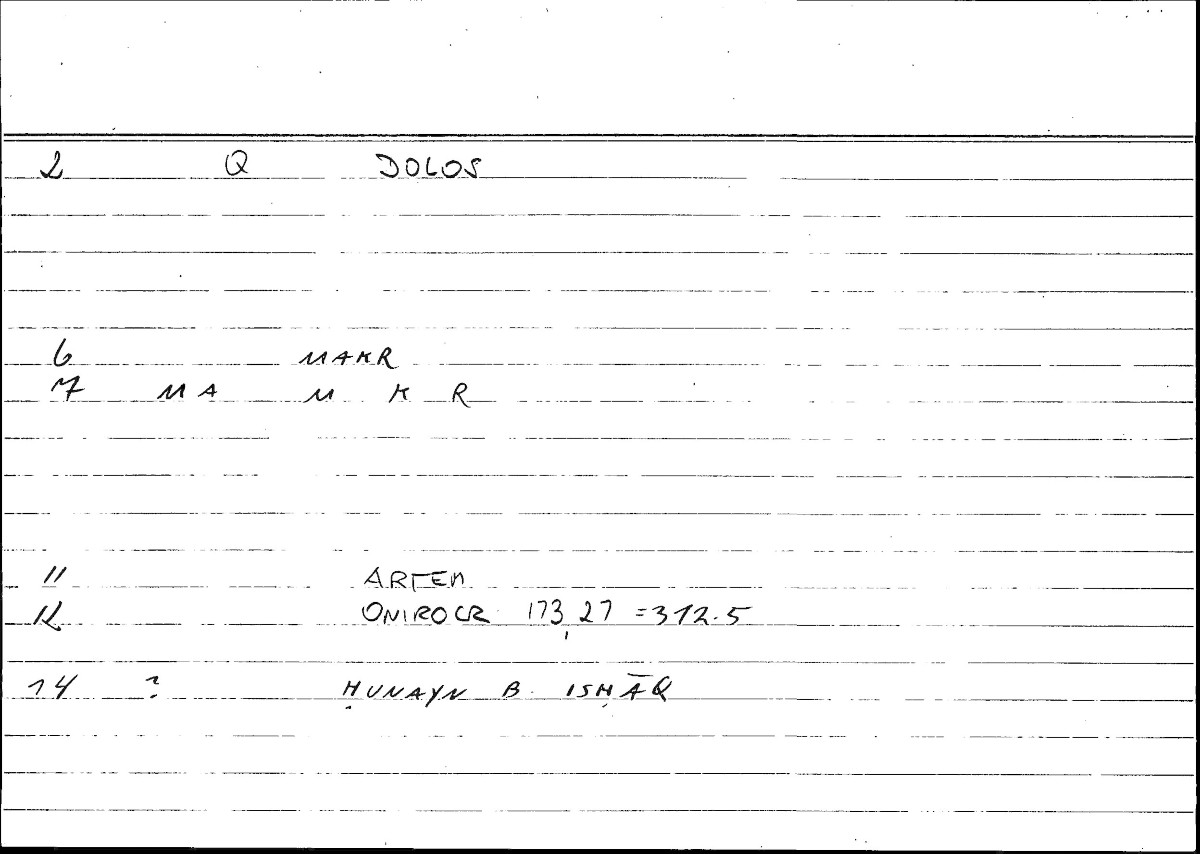 2 Q DOLOS
6 MAKR
7 MA M K R
11 ARTEM
12 ONIROCR 173,27 =312.5
14 ? ḤUNAYN B. ISḤĀQ